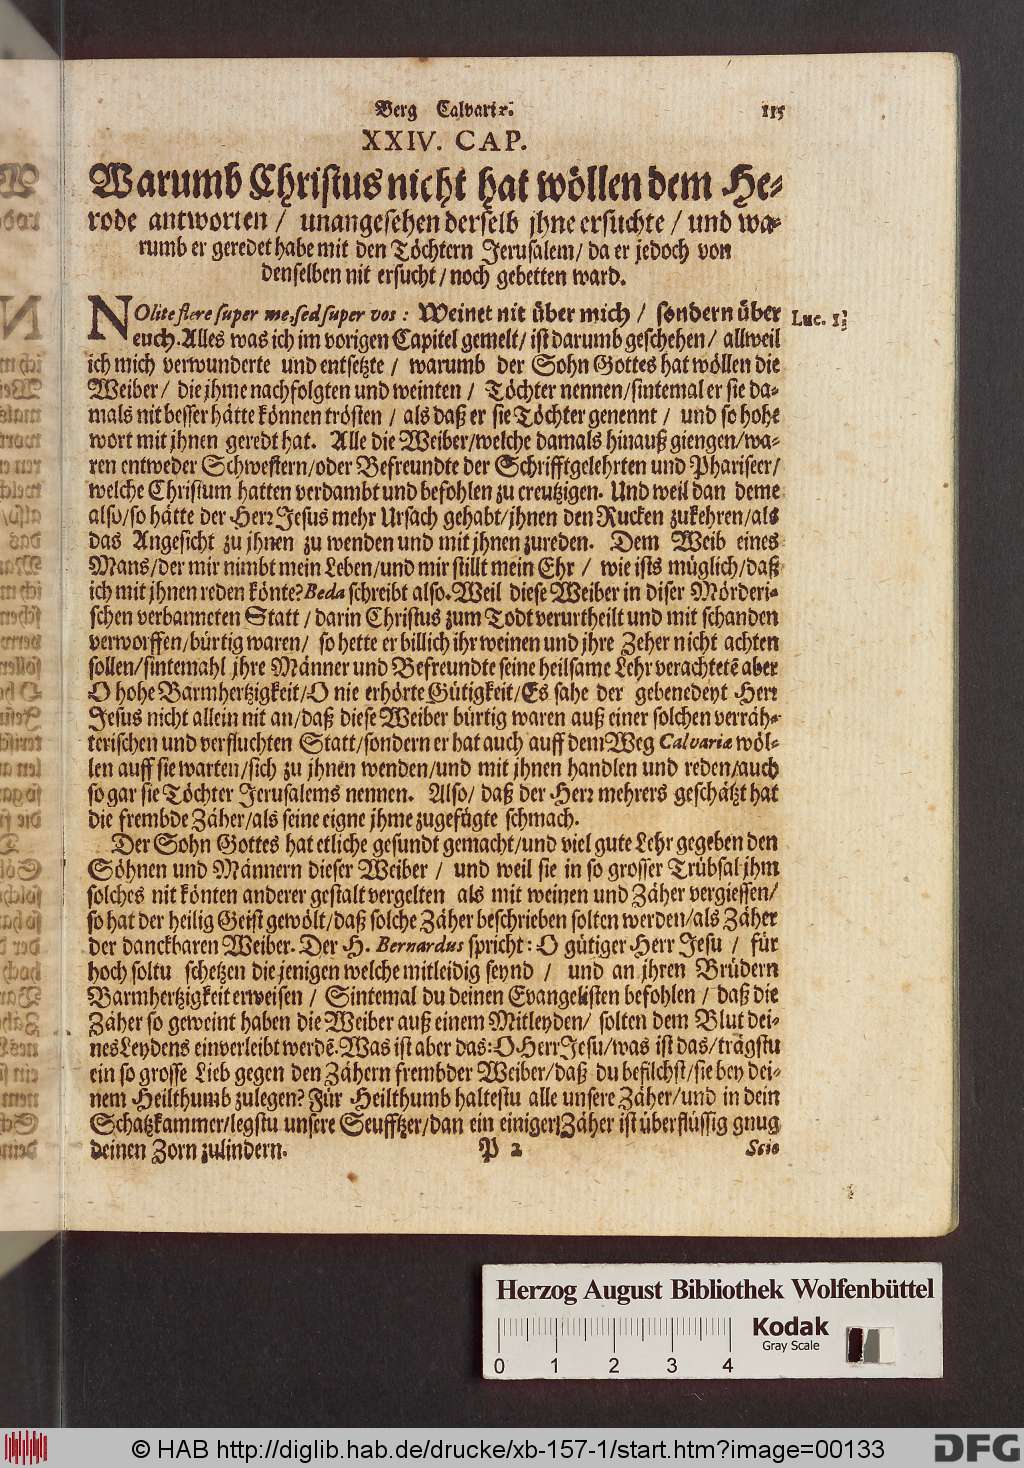 Berg Calvariæ.
115
XXIV. CAP.
Warumb Christus nicht hat wöllen dem He-
rode antworten / unangesehen derselb jhne ersuchte / und wa-
rumb er geredet habe mit den Töchtern Jerusalem / da er jedoch von
denselben nit ersucht / noch gebetten ward.
NOlite flere super me, sed super vos : Weinet nit über mich / sondern über
Luc. 23
euch. Alles was ich im vorigen Capitel gemelt / ist darumb geschehen / allweil
ich mich verwunderte und entsetzte / warumb der Sohn Gottes hat wöllen die
Weiber / die jhme nachfolgten und weinten / Töchter nennen / sintemal er sie da-
mals nit besser hätte können trösten / als daß er sie Töchter genennt / und so hohe
wort mit jhnen geredt hat. Alle die Weiber / welche damals hinauß giengen / wa-
ren entweder Schwestern / oder Befreundte der Schrifftgelehrten und Phariseer /
welche Christum hatten verdambt und befohlen zu creutzigen. Und weil dan deme
also / so hätte der Herr Jesus mehr Ursach gehabt / jhnen den Rucken zukehren / als
das Angesicht zu jhnen zu wenden und mit jhnen zureden. Dem Weib eines
Mans / der mir nimbt mein Leben / und mir stillt mein Ehr / wie ists müglich / daß
ich mit jhnen reden könte? Beda schreibt also. Weil diese Weiber in diser Mörderi-
schen verbanneten Statt / darin Christus zum Todt verurtheilt und mit schanden
verworffen / bürtig waren / so hette er billich ihr weinen und jhre Zeher nicht achten
sollen / sintemahl jhre Männer und Befreundte seine heilsame Lehr verachtetē aber
O hohe Barmhertzigkeit / O nie erhörte Gütigkeit / Es sahe der gebenedeyt Herr
Jesus nicht allein nit an / daß diese Weiber bürtig waren auß einer solchen verräh-
terischen und verfluchten Statt / sondern er hat auch auff dem Weg Calvariæ wöl-
len auff sie warten / sich zu jhnen wenden / und mit jhnen handlen und reden / auch
so gar sie Töchter Jerusalems nennen. Also / daß der Herr mehrers geschätzt hat
die frembde Zäher / als seine eigne jhme zugefügte schmach.
Der Sohn Gottes hat etliche gesundt gemacht / und viel gute Lehr gegeben den
Söhnen und Männern dieser Weiber / und weil sie in so grosser Trübsal jhm
solches nit könten anderer gestalt vergelten als mit weinen und Zäher vergiessen /
so hat der heilig Geist gewölt / daß solche Zäher beschrieben solten werden / als Zäher
der danckbaren Weiber. Der H. Bernardus spricht: O gütiger Herr Jesu / für
hoch soltu schetzen die jenigen welche mitleidig seynd / und an jhren Brüdern
Barmhertzigkeit erweisen / Sintemal du deinen Evangelisten befohlen / daß die
Zäher so geweint haben die Weiber auß einem Mitleyden / solten dem Blut dei-
nes Leydens einverleibt werdē. Was ist aber das: O Herr Jesu / was ist das / trägstu
ein so grosse Lieb gegen den Zähern frembder Weiber / daß du befilchst / sie bey dei-
nem Heilthumb zulegen? Für Heilthumb haltestu alle unsere Zäher / und in dein
Schatzkammer / legstu unsere Seufftzer / dan ein einiger Zäher ist überflüssig gnug
deinen Zorn zulindern.
P 2
Scio
Herzog August Bibliothek Wolfenbüttel
0 1 2 3 4
Kodak
Gray Scale
© HAB http://diglib.hab.de/drucke/xb-157-1/start.htm?image=00133
DFG